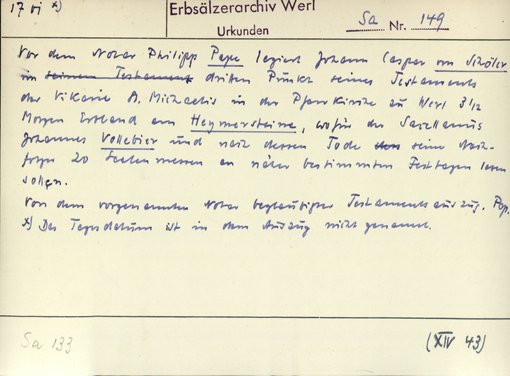 17 vi x)
Erbsälzerarchiv Werl
Urkunden
Sa Nr. 149
Vor dem Notar Philipp Pape legiert Johann Caspar von Schöler
im seinem Testament dritten Punkt seines Testaments
der Vikarie S. Michaelis in der Pfarrkirche zu Werl 3 1/2
Morgen Erbland am Heymersteine, wofür der Sacellanus
Johannes Vollebier und nach dessen Tode seine Nach-
folger 20 Seelenmessen an näher bestimmten Festtagen lesen
sollen.
Von dem vorgenannten Notar beglaubigter Testamentsauszug. Pap.
x) Das Tagesdatum ist in dem Auszug nicht genannt.
Sa 133
(XIV 43)